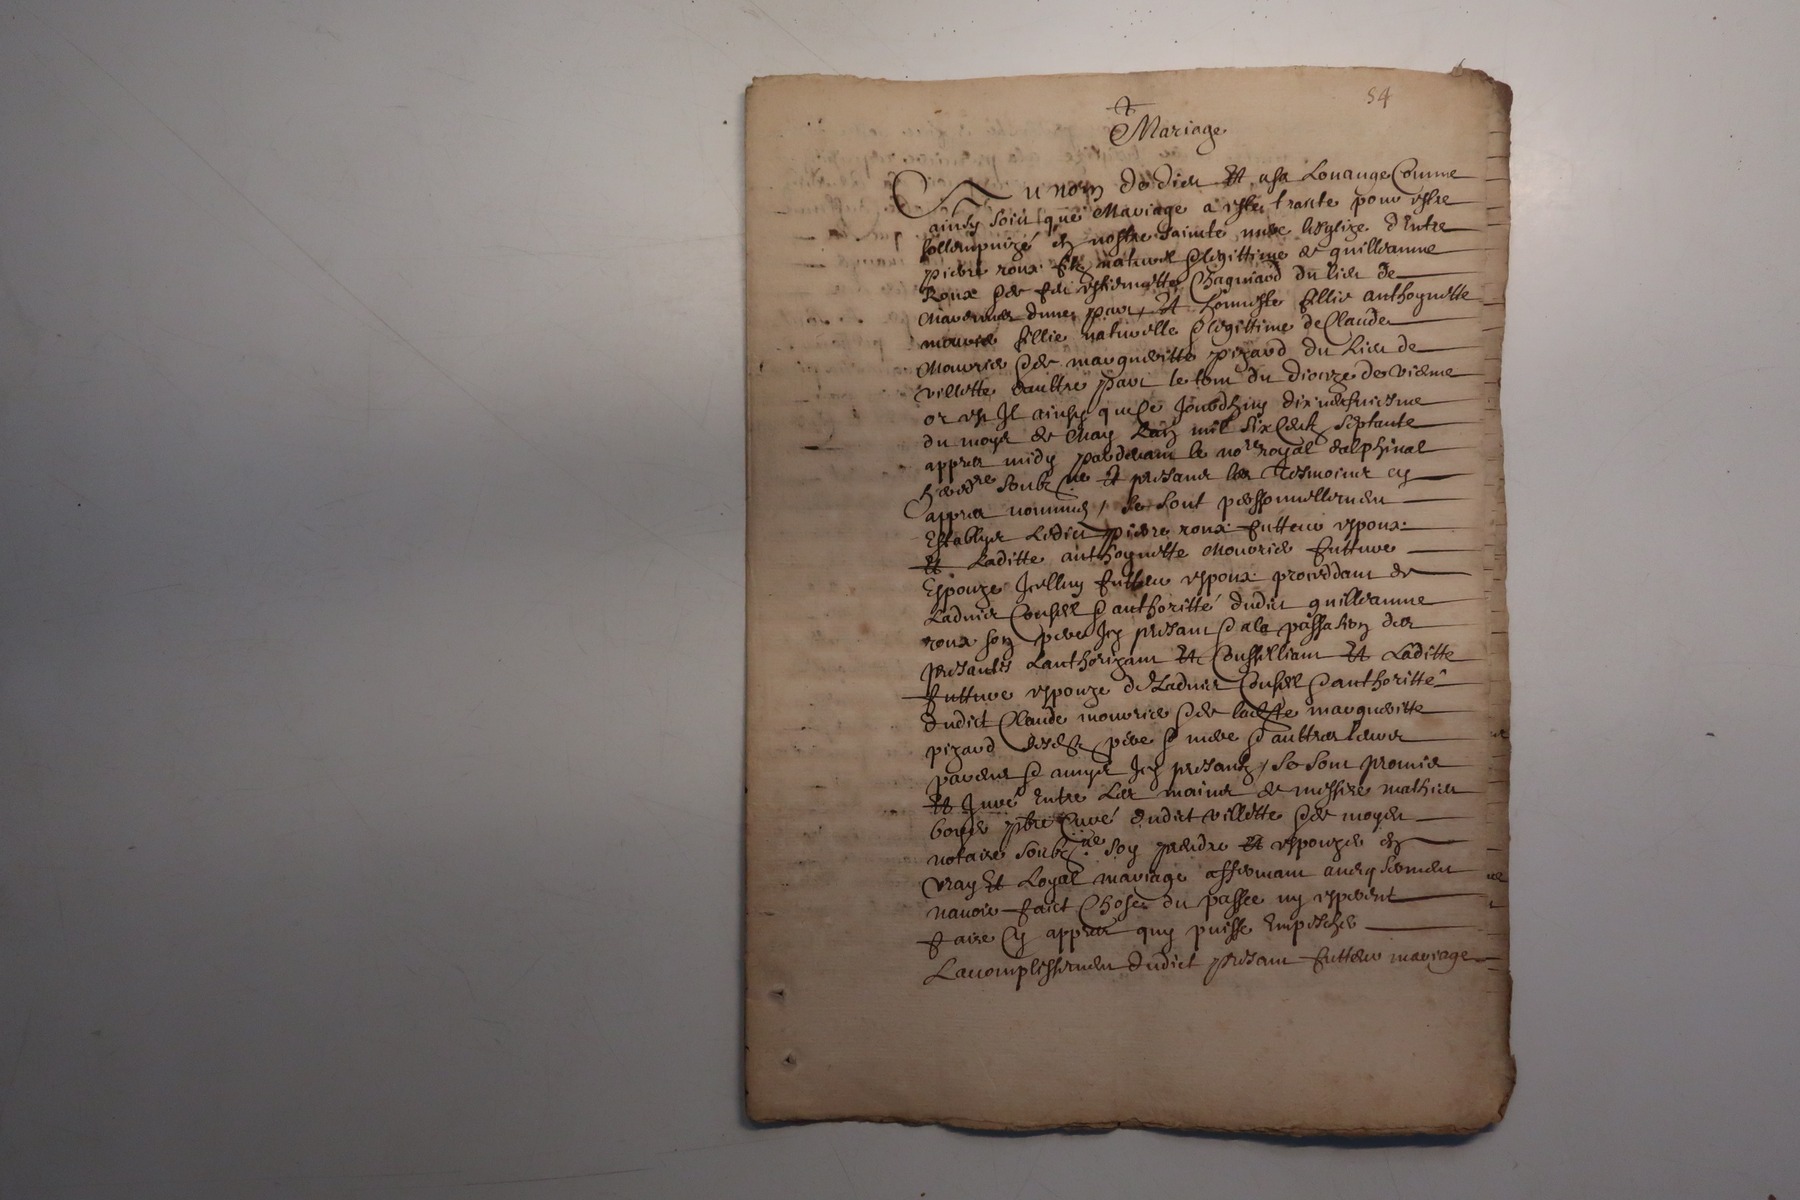 54
Mariage
Au nom de dieu Et a sa Louange Comme
ainsy soict que Mariage a este traicte pour estre
sollempnizé en nostre sainte mere lesglize d'Entre
pierre roux filz naturel & legittime de guilleaume
Roux & de feu estiennette Chagniard du lieu de
dune part, Et honneste fillie anthoynette
mourier fillie naturelle & legittime de Claude
Mourier & de margueritte pizard du Lieu de
villette daultre part le tout du dioceze de vienne
or est Jl ainsy que Ce Jourdhuy dix neufviesme
du moys de May Lan mil six Centz septante
appres midy pardevant le no.re royal dalphinal
hered.re soubz.ne Et presant les Tesmoins cy
appres nommes, se sont personnellement
Establys Ledict pierre roux futteur espoux
Et Laditte anthoynette Mourier futture
Espouze Jcelluy futteur espoux proceddant de
Ladvis Conseil & authoritté dudict guilleaume
roux son pere Jcy presant & a la passation des
presantes Lauthorizant Et Conseilliant Et Laditte
futture espouze de Ladvis Conseil & authoritté
dudict Claude mourier & de laditte margueritte
pizard sesdits pere & mere & aultres leurs
parens & amys Jcy presantz, se sont promis
Et Juré Entre Les mains de messire mathieu
pbre Curé dudict villette & de moydit
notaire soubz.ne soy prendre Et espouzer en
vray Et Loyal mariage affermant
navoir faict Choses du passee ny esperent
faire Cy appres quy puisse Empescher
Lacomplissement dudict presant futteur mariage